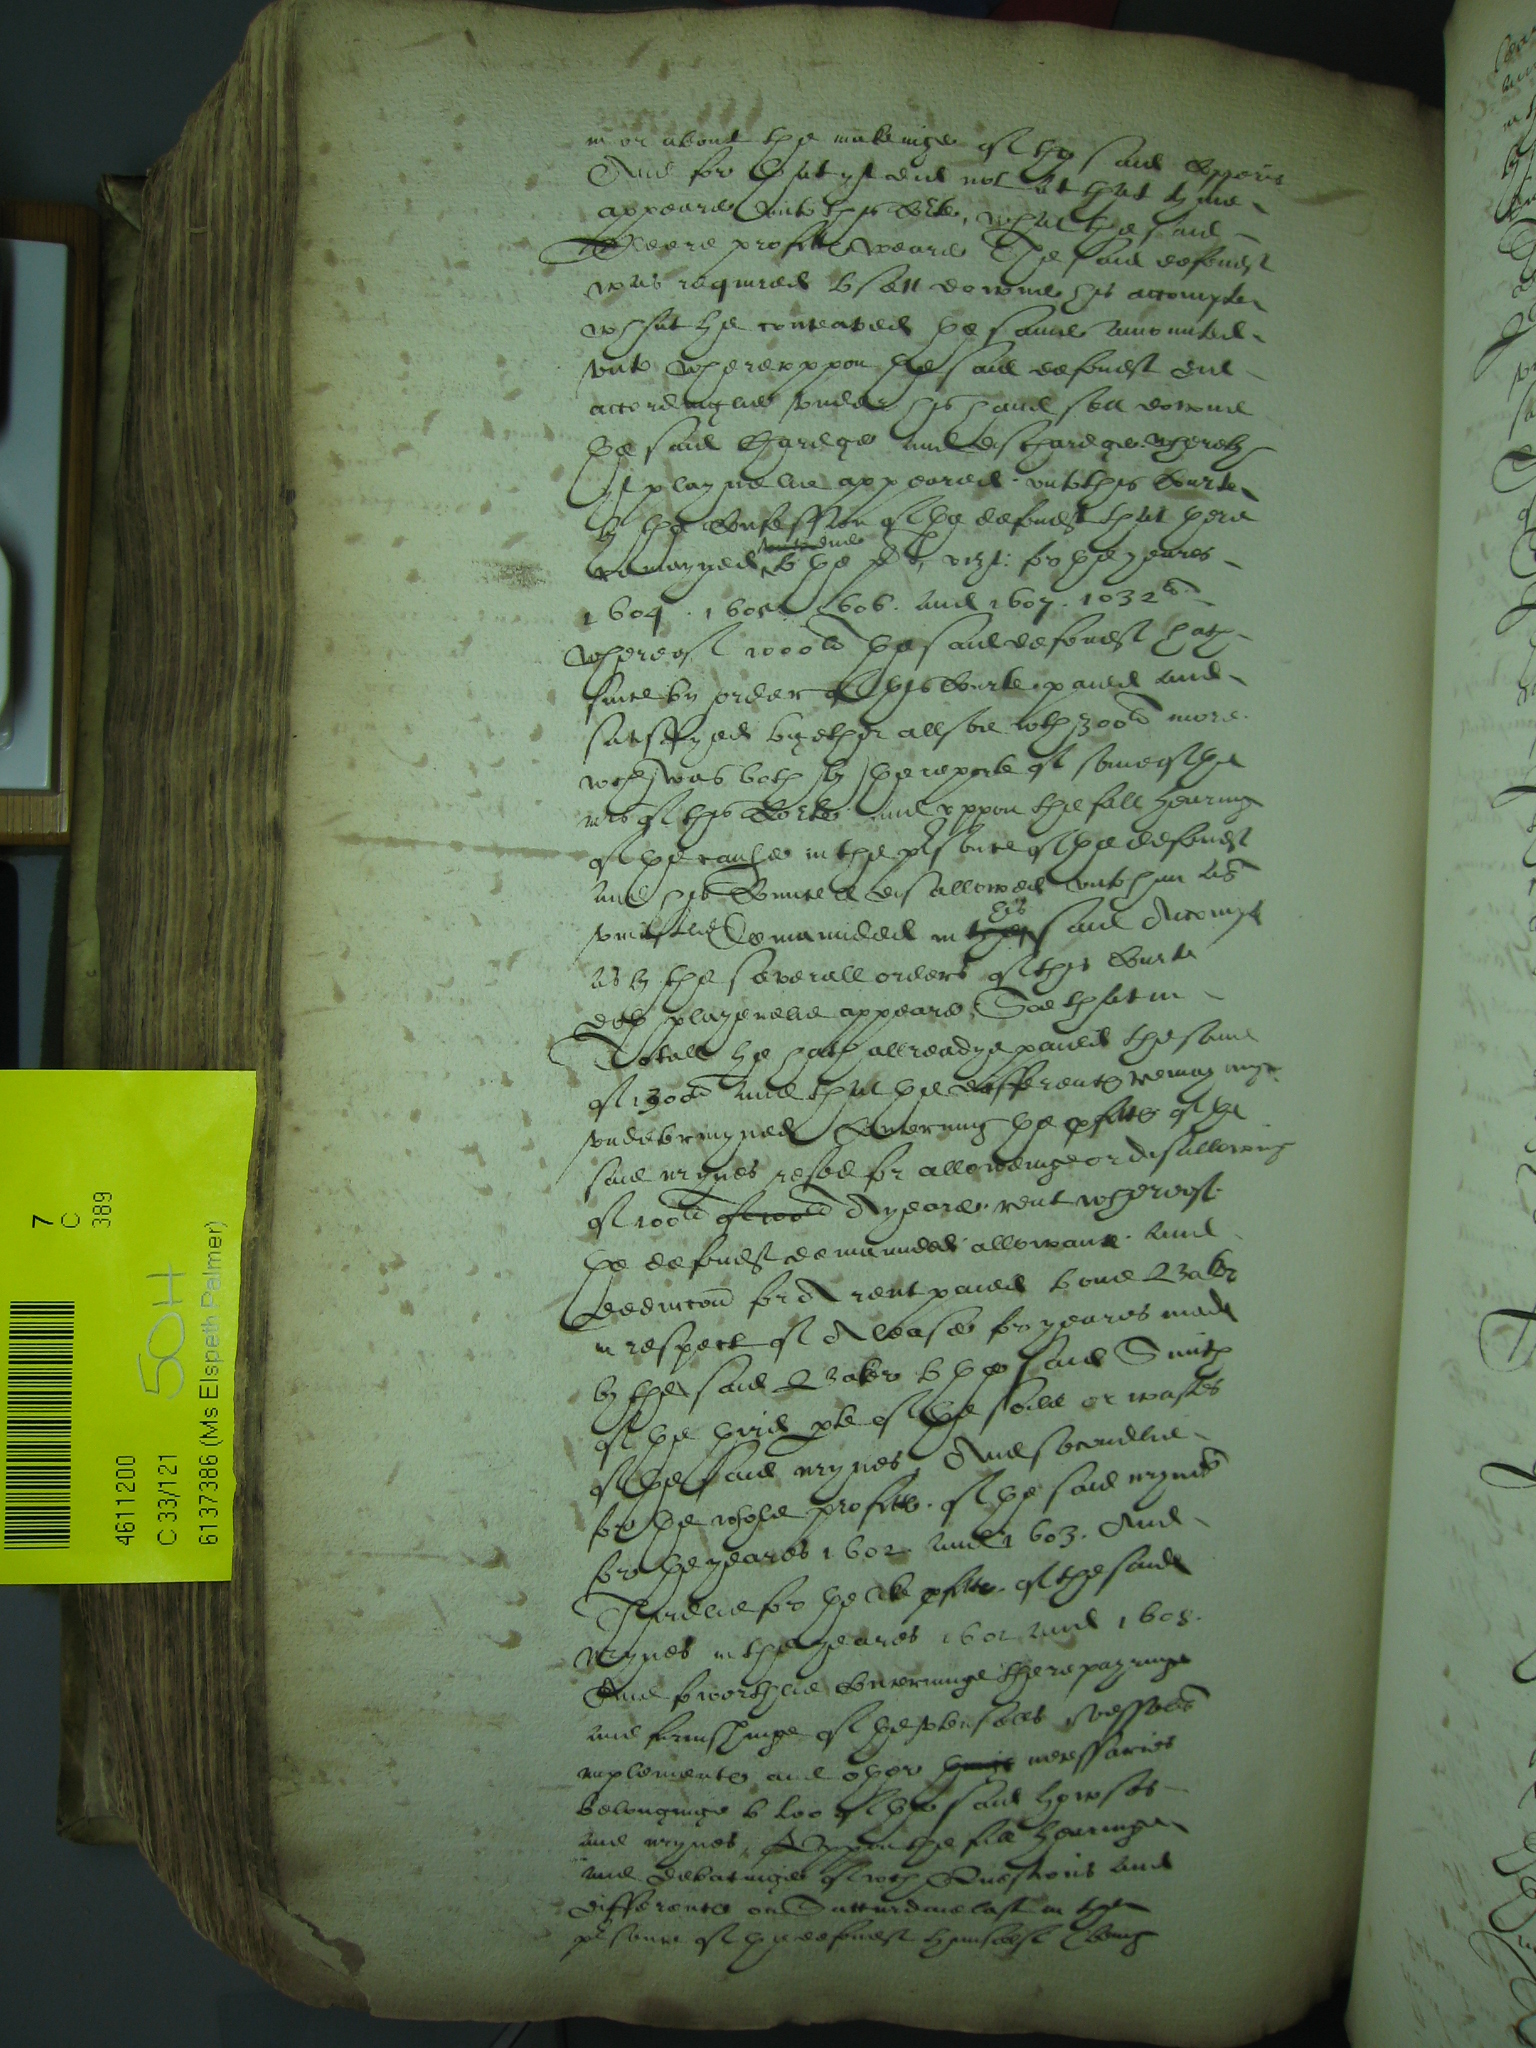 in or about the makeinge of the said Copperis
And for that yt did not at that tyme
appeare unto this Corte, what the said
Cleere profitts weare The said defendt
was required to sett downe his accompte
what he conceaved the same amounted
unto whereuppon the said defendt did
accordinglie under his hand sett downe
the said Chardge and dischardge whereby
yt playnelie appeared unto this Courte
by the Confession of the defendt that there
remayned to the plt, vizt: for the yeares
1604 . 1605 . 1606 . and 1607 . 1032li
whereof 1000li the said defendt hath
since by order of this Courte paied and
satisfyed together allsoe wth 300li more
wch was both by the reporte of some of the
mrs of this Corte and uppon the full hearing
of the cause in the psence of the defendt
and his Councell disallowed unto him as
uniustlie Demaunded in the his said Accompt
as by the severall orders of this Courte
doth playnelie appeare, Soe that in
Totall he hath allreadye paied the some
of 1300li and that the differents remayninge
undetermyned Concerning the pfitts of the
said mynes rested for alloweinge or disallowing
of 100li of 100li A yeare rent whereof
the defendt demaunded allowance and
deduccon for A rent paied to one Baker
in respect of A lease for yeares made
by the said Baker to the said Smith
of the third pte of the soile or wastes
of the said mynes, And secondlie
for the whole profitts of the said mynes
for the yeares 1602 and 1603. And
Thirdlie for the like pfitts of the said
mynes in the yeares 1602 and 1608.
And fowerthlie Concerninge the repayringe
and furnishinge of the utensills vessells
implements and other things necessaries
belonginge to too of the said howses
and mynes, Uppon the full hearinge
and debatinge of wch Questions and
differents on Satturdaie last in the
psence of the defendt himselfe being
4611200
C 33/121
6137386 (Ms Elspeth Palmer)
50H
7
C
389